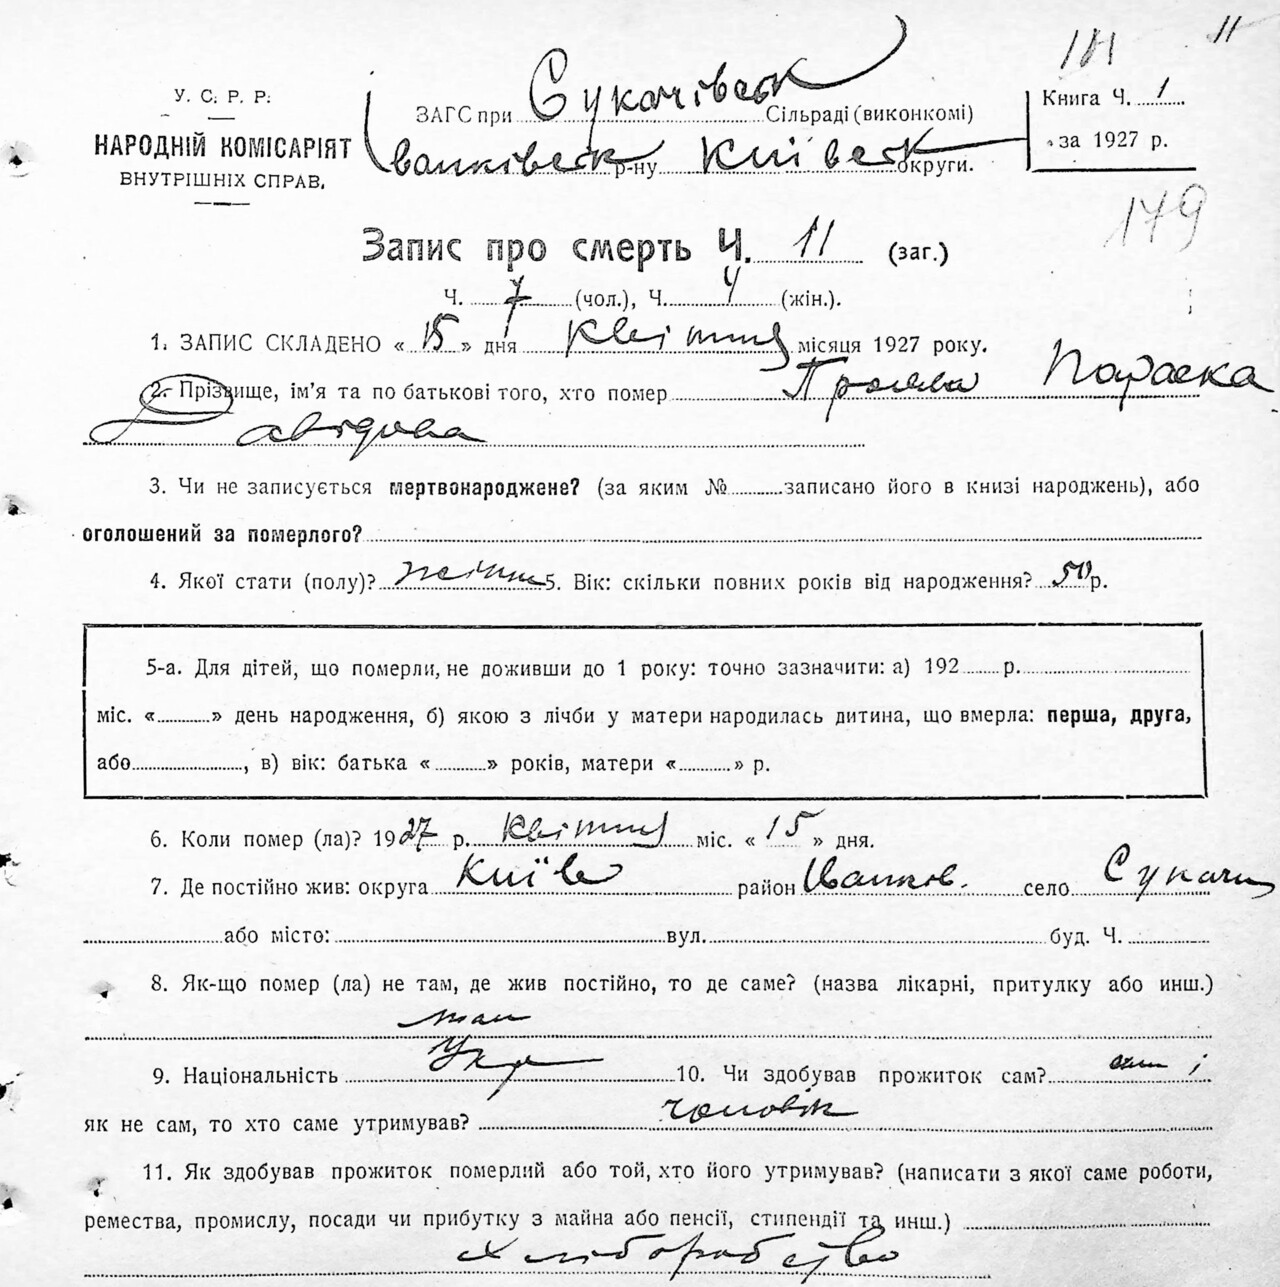 11
У. С. Р. Р.
НАРОДНІЙ КОМІСАРІЯТ
ВНУТРІШНІХ СПРАВ.
ЗАГС при Сукачівськ Сільраді (виконкомі)
Іванківськ р-ну Київськ округи.
Книга Ч. 1
за 1927 р.
179
Запис про смерть Ч. 11 (заг.)
Ч. 7 (чол.), Ч. 4 (жін.).
1. ЗАПИС СКЛАДЕНО « 15 » дня Квітня місяця 1927 року.
2. Прізвище, ім’я та по батькові того, хто помер Параска
Давідова
3. Чи не записується мертвонароджене? (за яким № записано його в книзі народжень), або
оголошений за померлого?
4. Якої стати (полу)? жіноч 5. Вік: скільки повних років від народження? 50 р.
5-а. Для дітей, що померли, не доживши до 1 року: точно зазначити: а) 192 р.
міс. « » день народження, б) якою з лічби у матери народилась дитина, що вмерла: перша, друга,
або , в) вік: батька « » років, матери « » р.
6. Коли помер (ла)? 1927 р. Квітня міс. « 15 » дня.
7. Де постійно жив: округа Київ район Іванков. село Сукачі
або місто: вул. буд. Ч.
8. Як-що помер (ла) не там, де жив постійно, то де саме? (назва лікарні, притулку або инш.)
там
9. Національність Укр 10. Чи здобував прожиток сам?
як не сам, то хто саме утримував? чоловік
11. Як здобував прожиток померлий або той, хто його утримував? (написати з якої саме роботи,
ремества, промислу, посади чи прибутку з майна або пенсії, стипендії та инш.)
хліборобство